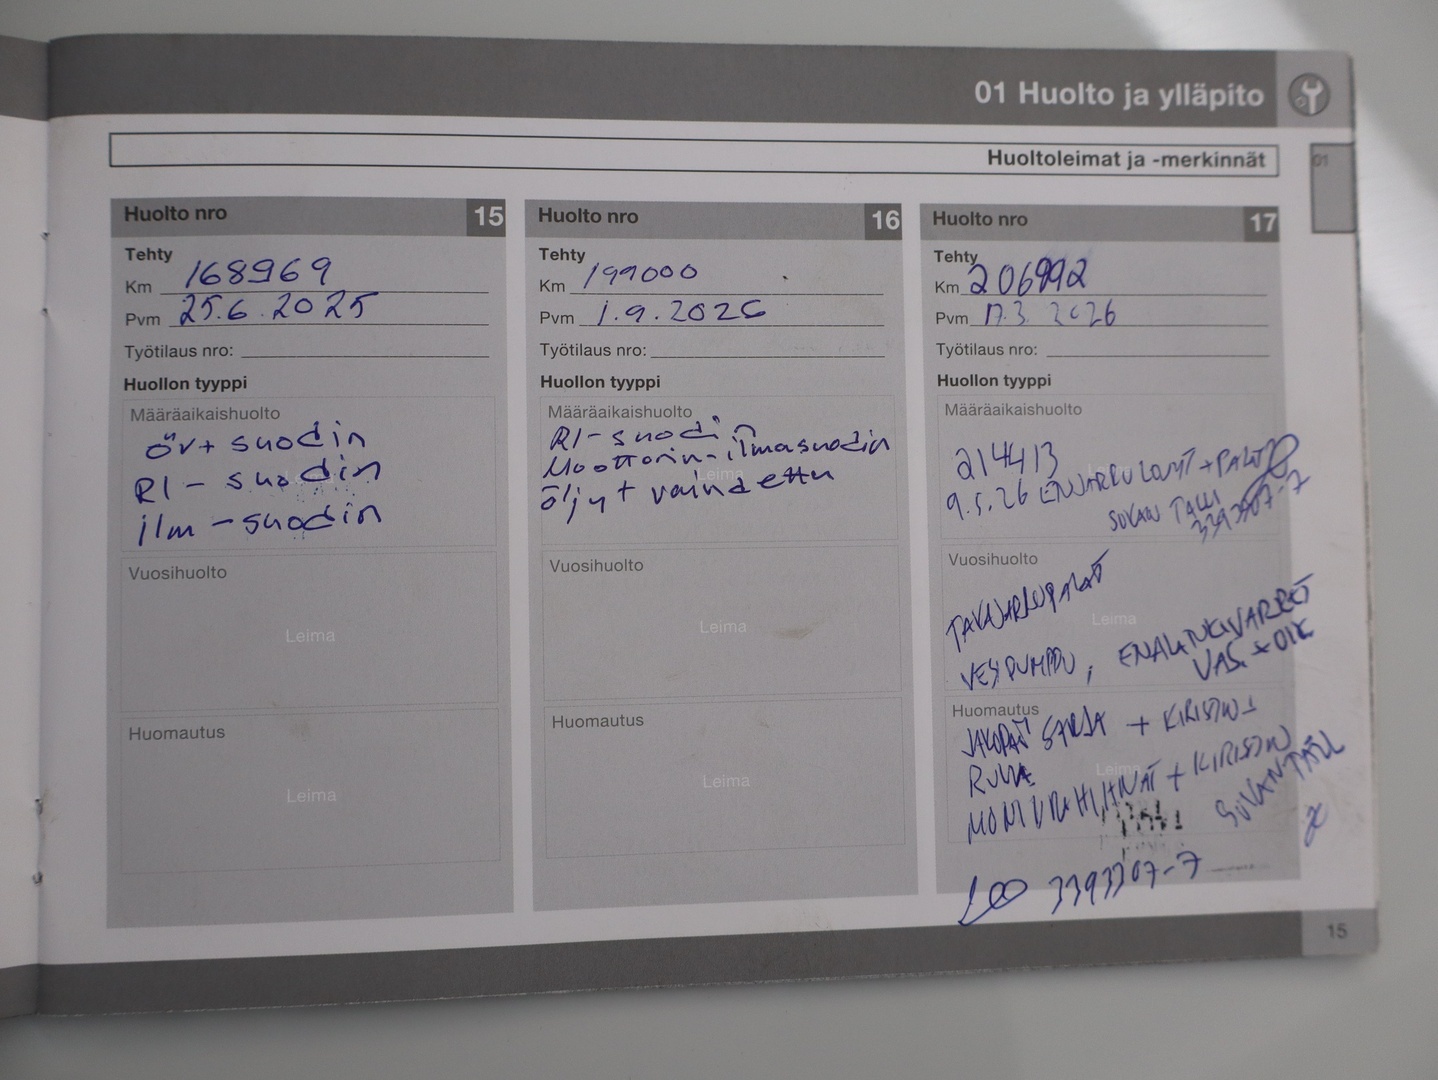 01 Huolto ja ylläpito
Huoltoleimat ja -merkinnät
01
Huolto nro 15
Tehty
Km 168969
Pvm 25.6.2025
Työtilaus nro:
Huollon tyyppi
Määräaikaishuolto
öv+ suodin
RI - suodin
ilm - suodin
Vuosihuolto
Leima
Huomautus
Leima
Huolto nro 16
Tehty
Km 199000
Pvm 1.9.2026
Työtilaus nro:
Huollon tyyppi
Määräaikaishuolto
RI - suodin
Moottorin - ilmasuodin
Leima
öljyt vaihdettu
Vuosihuolto
Leima
Huomautus
Leima
Huolto nro 17
Tehty
Km 206992
Pvm 17.3. 2026
Työtilaus nro:
Huollon tyyppi
Määräaikaishuolto
214413
9.5.26 ENJARRU LEVYT + PALAT
TALLI
3393307-7
Vuosihuolto
TAKAJARRUPALAT
Leima
VESPUMPPU, ENALATUKIVARRET
VAS. + OIK
Huomautus
JAKOPÄÄ SARJA + KIRISTIN
RULLA
Leima
MONIURAHIHNAT + KIRISTIN
3393307-7
15